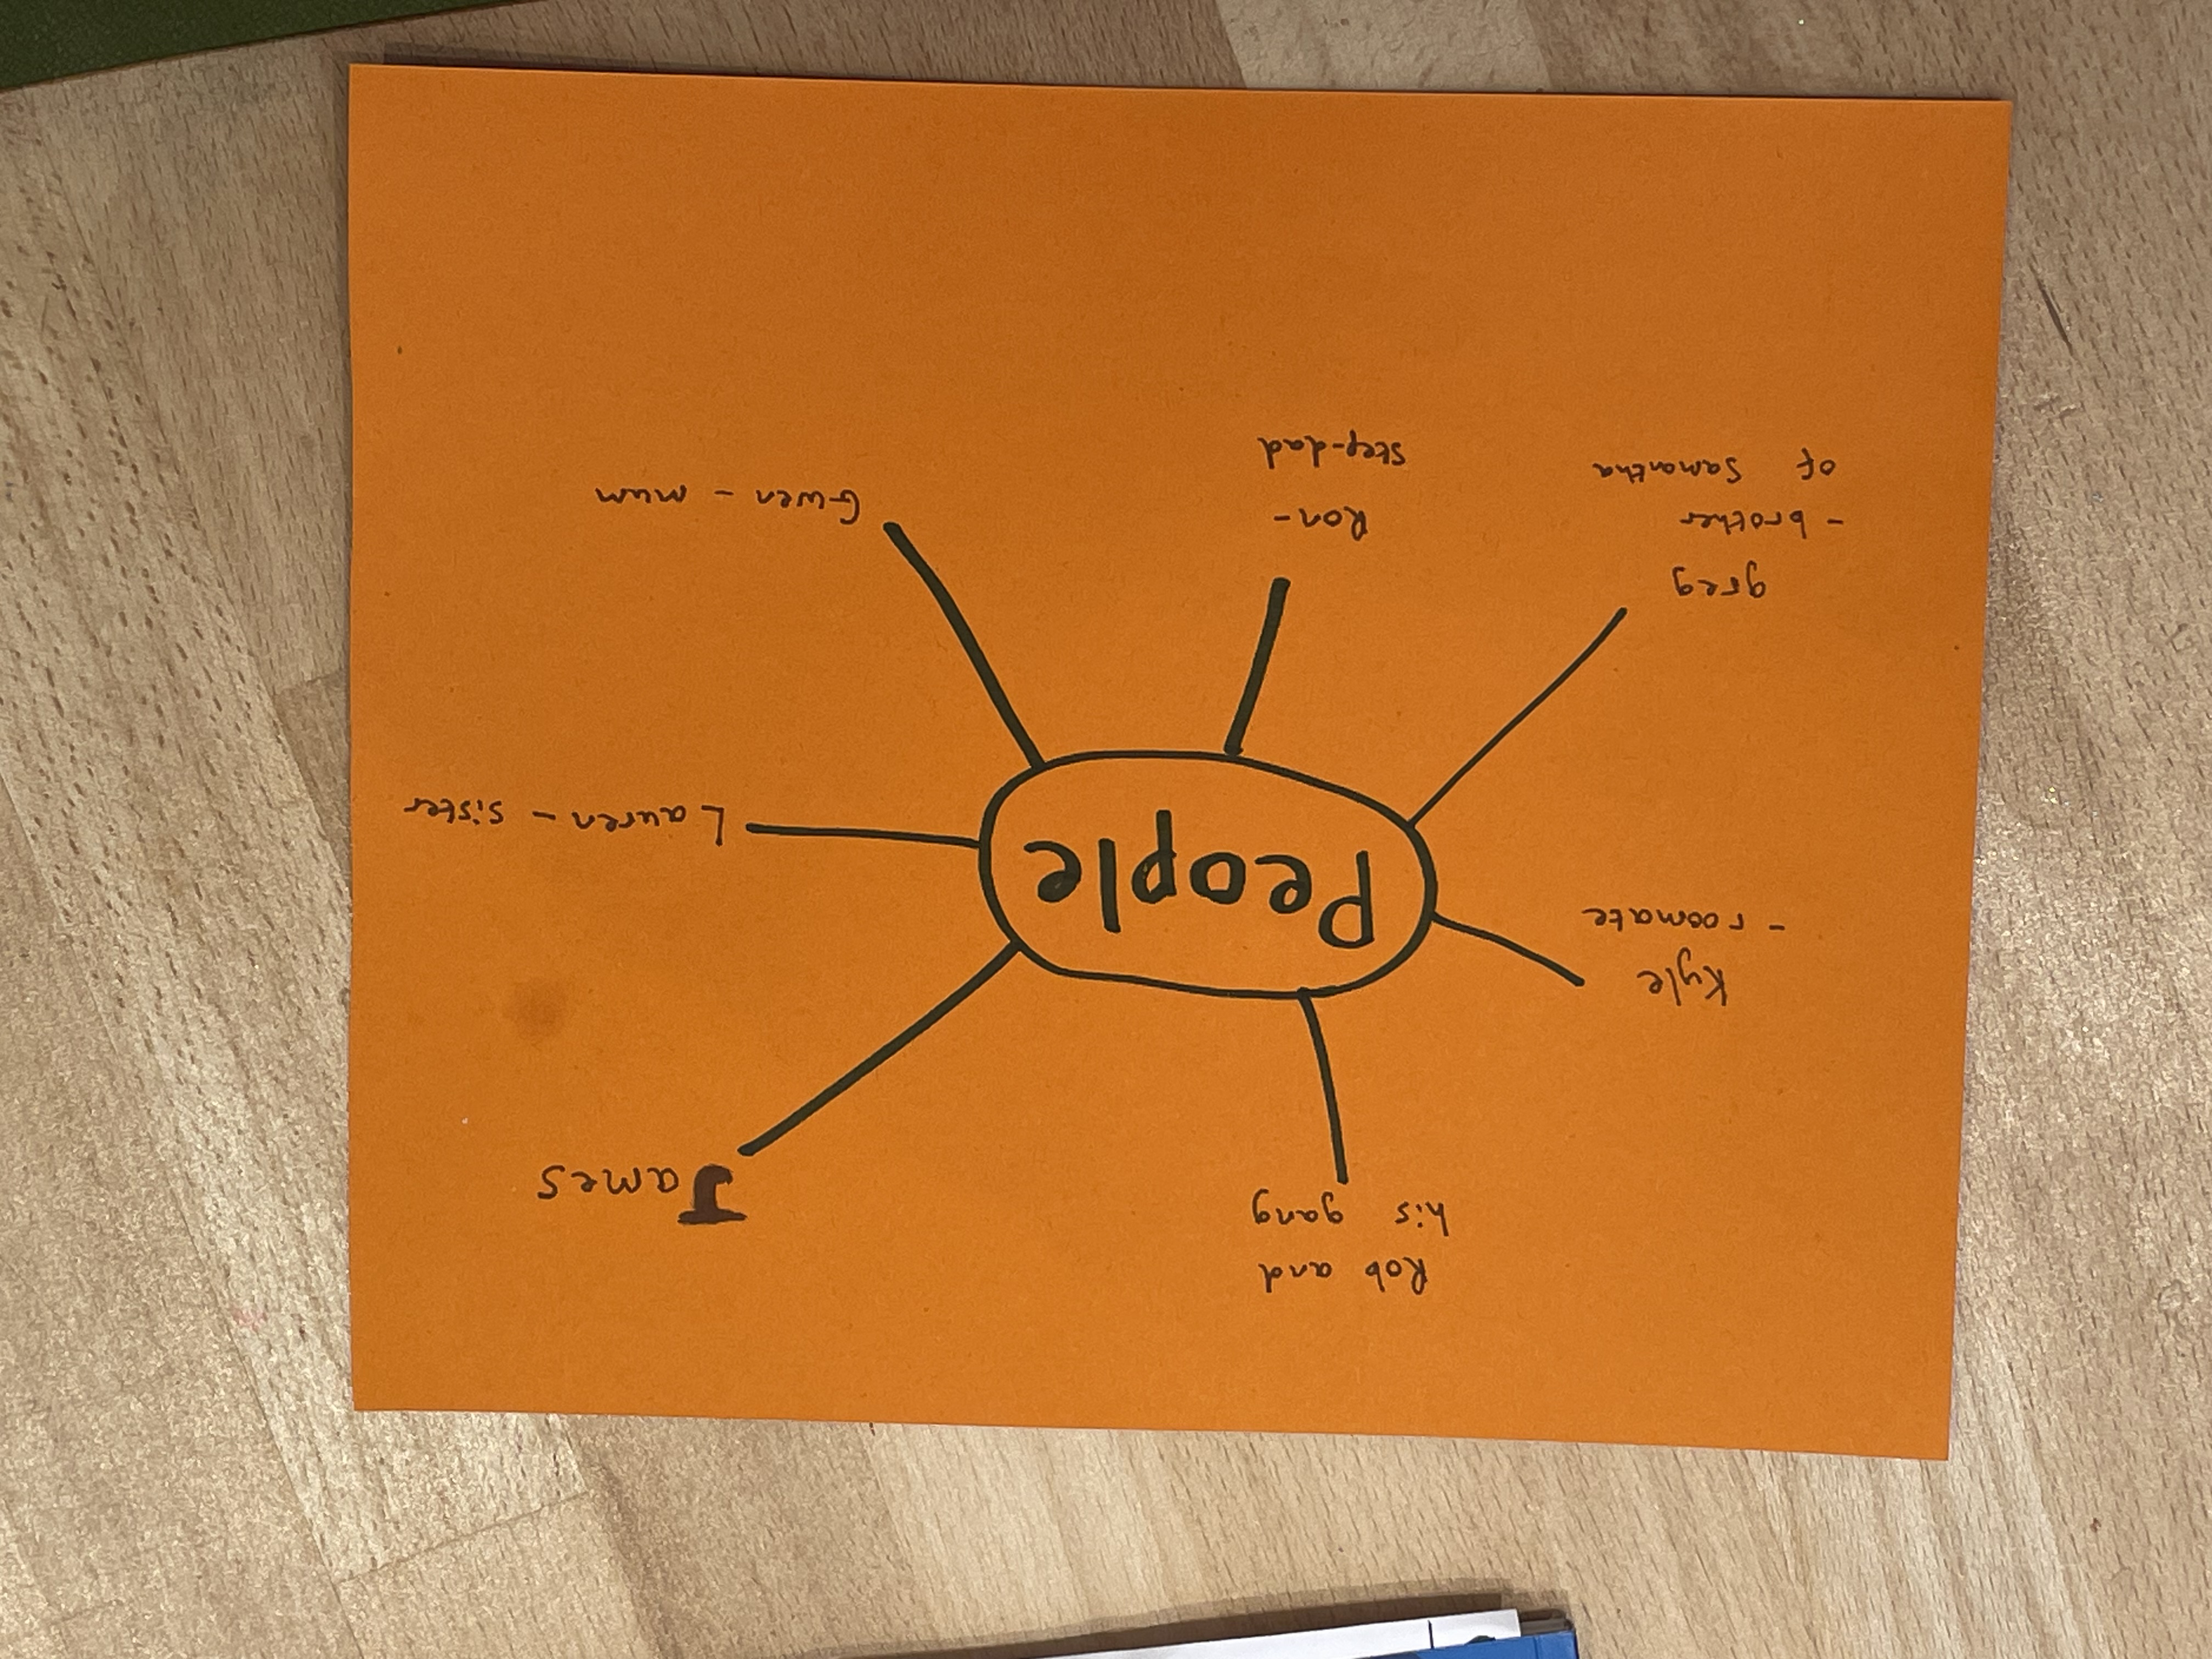 Rob and
his gang
James
Kyle
- roomate
People
Lauren - sister
greg
- brother
of Samantha
Ron -
step-dad
Gwen - mum